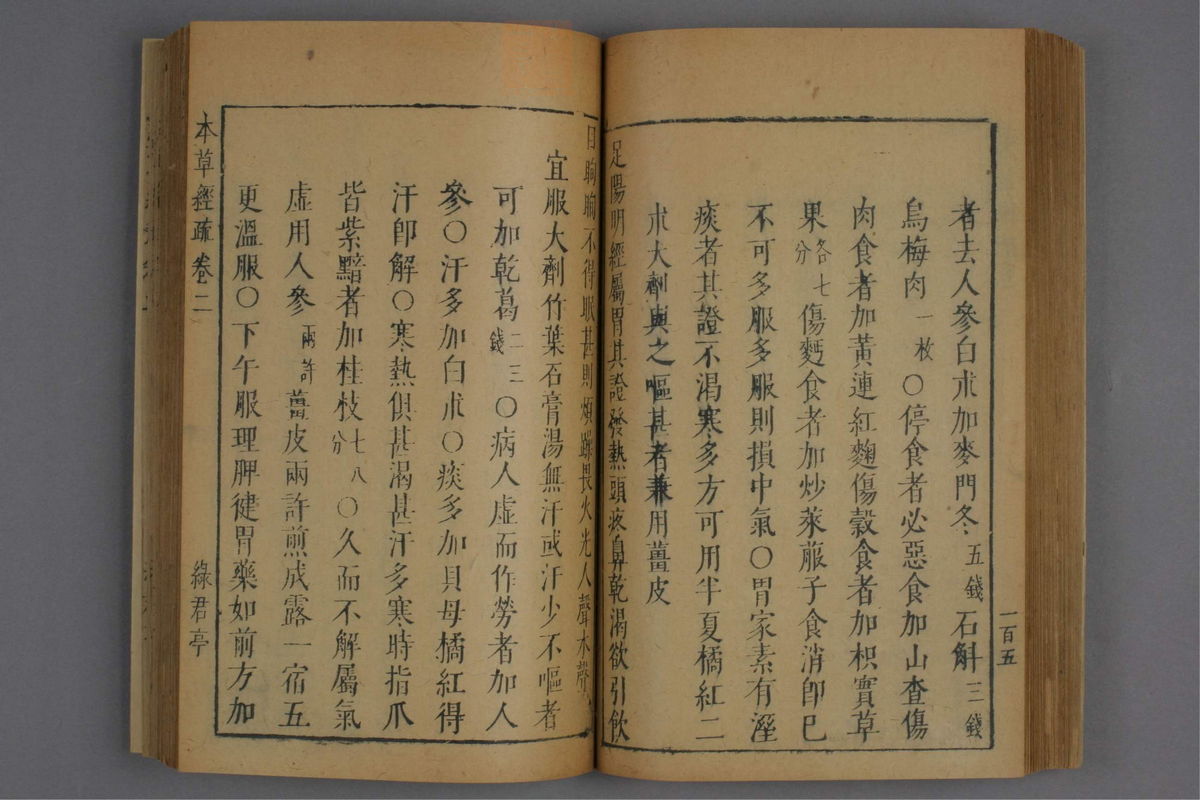 者去人參白朮加麥門冬五錢石斛三錢
烏梅肉一枚○停食者必惡食加山查傷
肉食者加黃連紅麴傷穀食者加枳實草
果各七分傷麪食者加炒萊菔子食消卽已
不可多服多服則損中氣○胃家素有溼
痰者其證不渴寒多方可用半夏橘紅二
朮大劑與之嘔甚者兼用薑皮
足陽明經屬胃其證發熱頭疼鼻乾渴欲引飲
目眴眴不得眠甚則煩躁畏火光人聲木聲
宜服大劑竹葉石膏湯無汗或汗少不嘔者
可加乾葛二三錢○病人虛而作勞者加人
參○汗多加白朮○痰多加貝母橘紅得
汗卽解○寒熱俱甚渴甚汗多寒時指爪
皆紫黯者加桂枝七八分○久而不解屬氣
虛用人參兩許薑皮兩許煎成露一宿五
更溫服○下午服理脾健胃藥如前方加
一百五
本草經疏 卷二
綠君亭